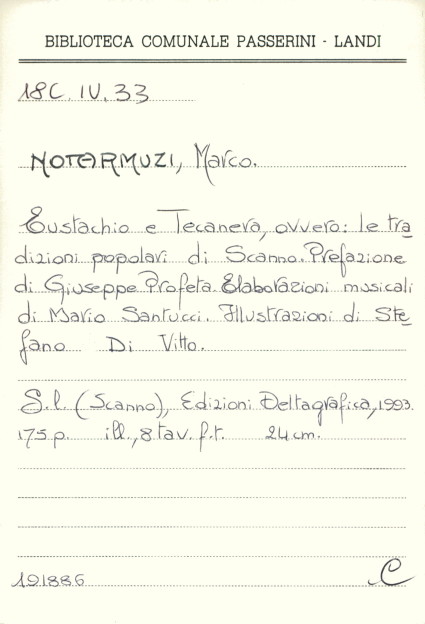 BIBLIOTECA COMUNALE PASSERINI - LANDI
18C. IV. 33
NOTARMUZI, Marco.
Eustachio e Tecanera, ovvero: le tra
dizioni popolari di Scanno. Prefazione
di Giuseppe Profeta. Elaborazioni musicali
di Mario Santucci. Illustrazioni di Ste
fano Di Vitto.
S.l. (Scanno), Edizioni Deltagrafica, 1993.
175 p. ill., 8 tav. f.t. 24 cm.
191886 C